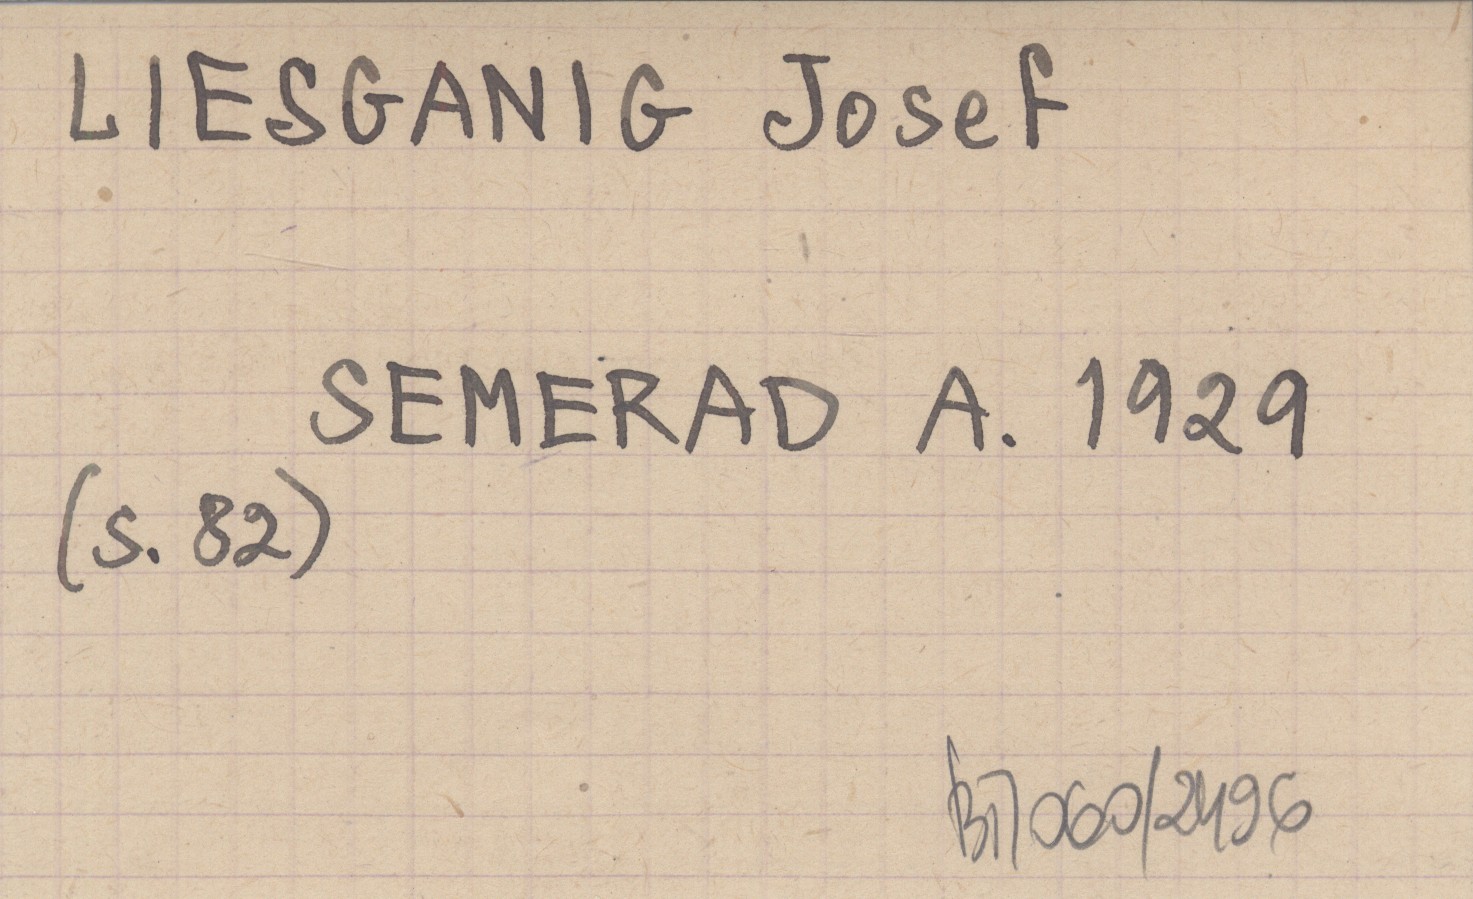 LIESGANIG Josef
SEMERAD A. 1929
(s. 82)
060/2496